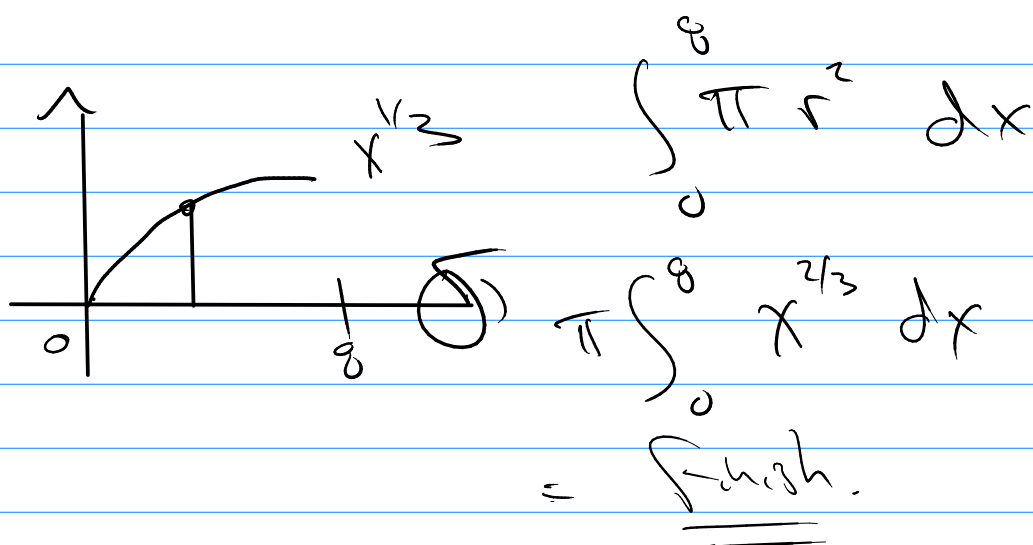 x^{1/3}
0 8
∫_0^8 π r^2 dx
π ∫_0^8 x^{2/3} dx
= finish.